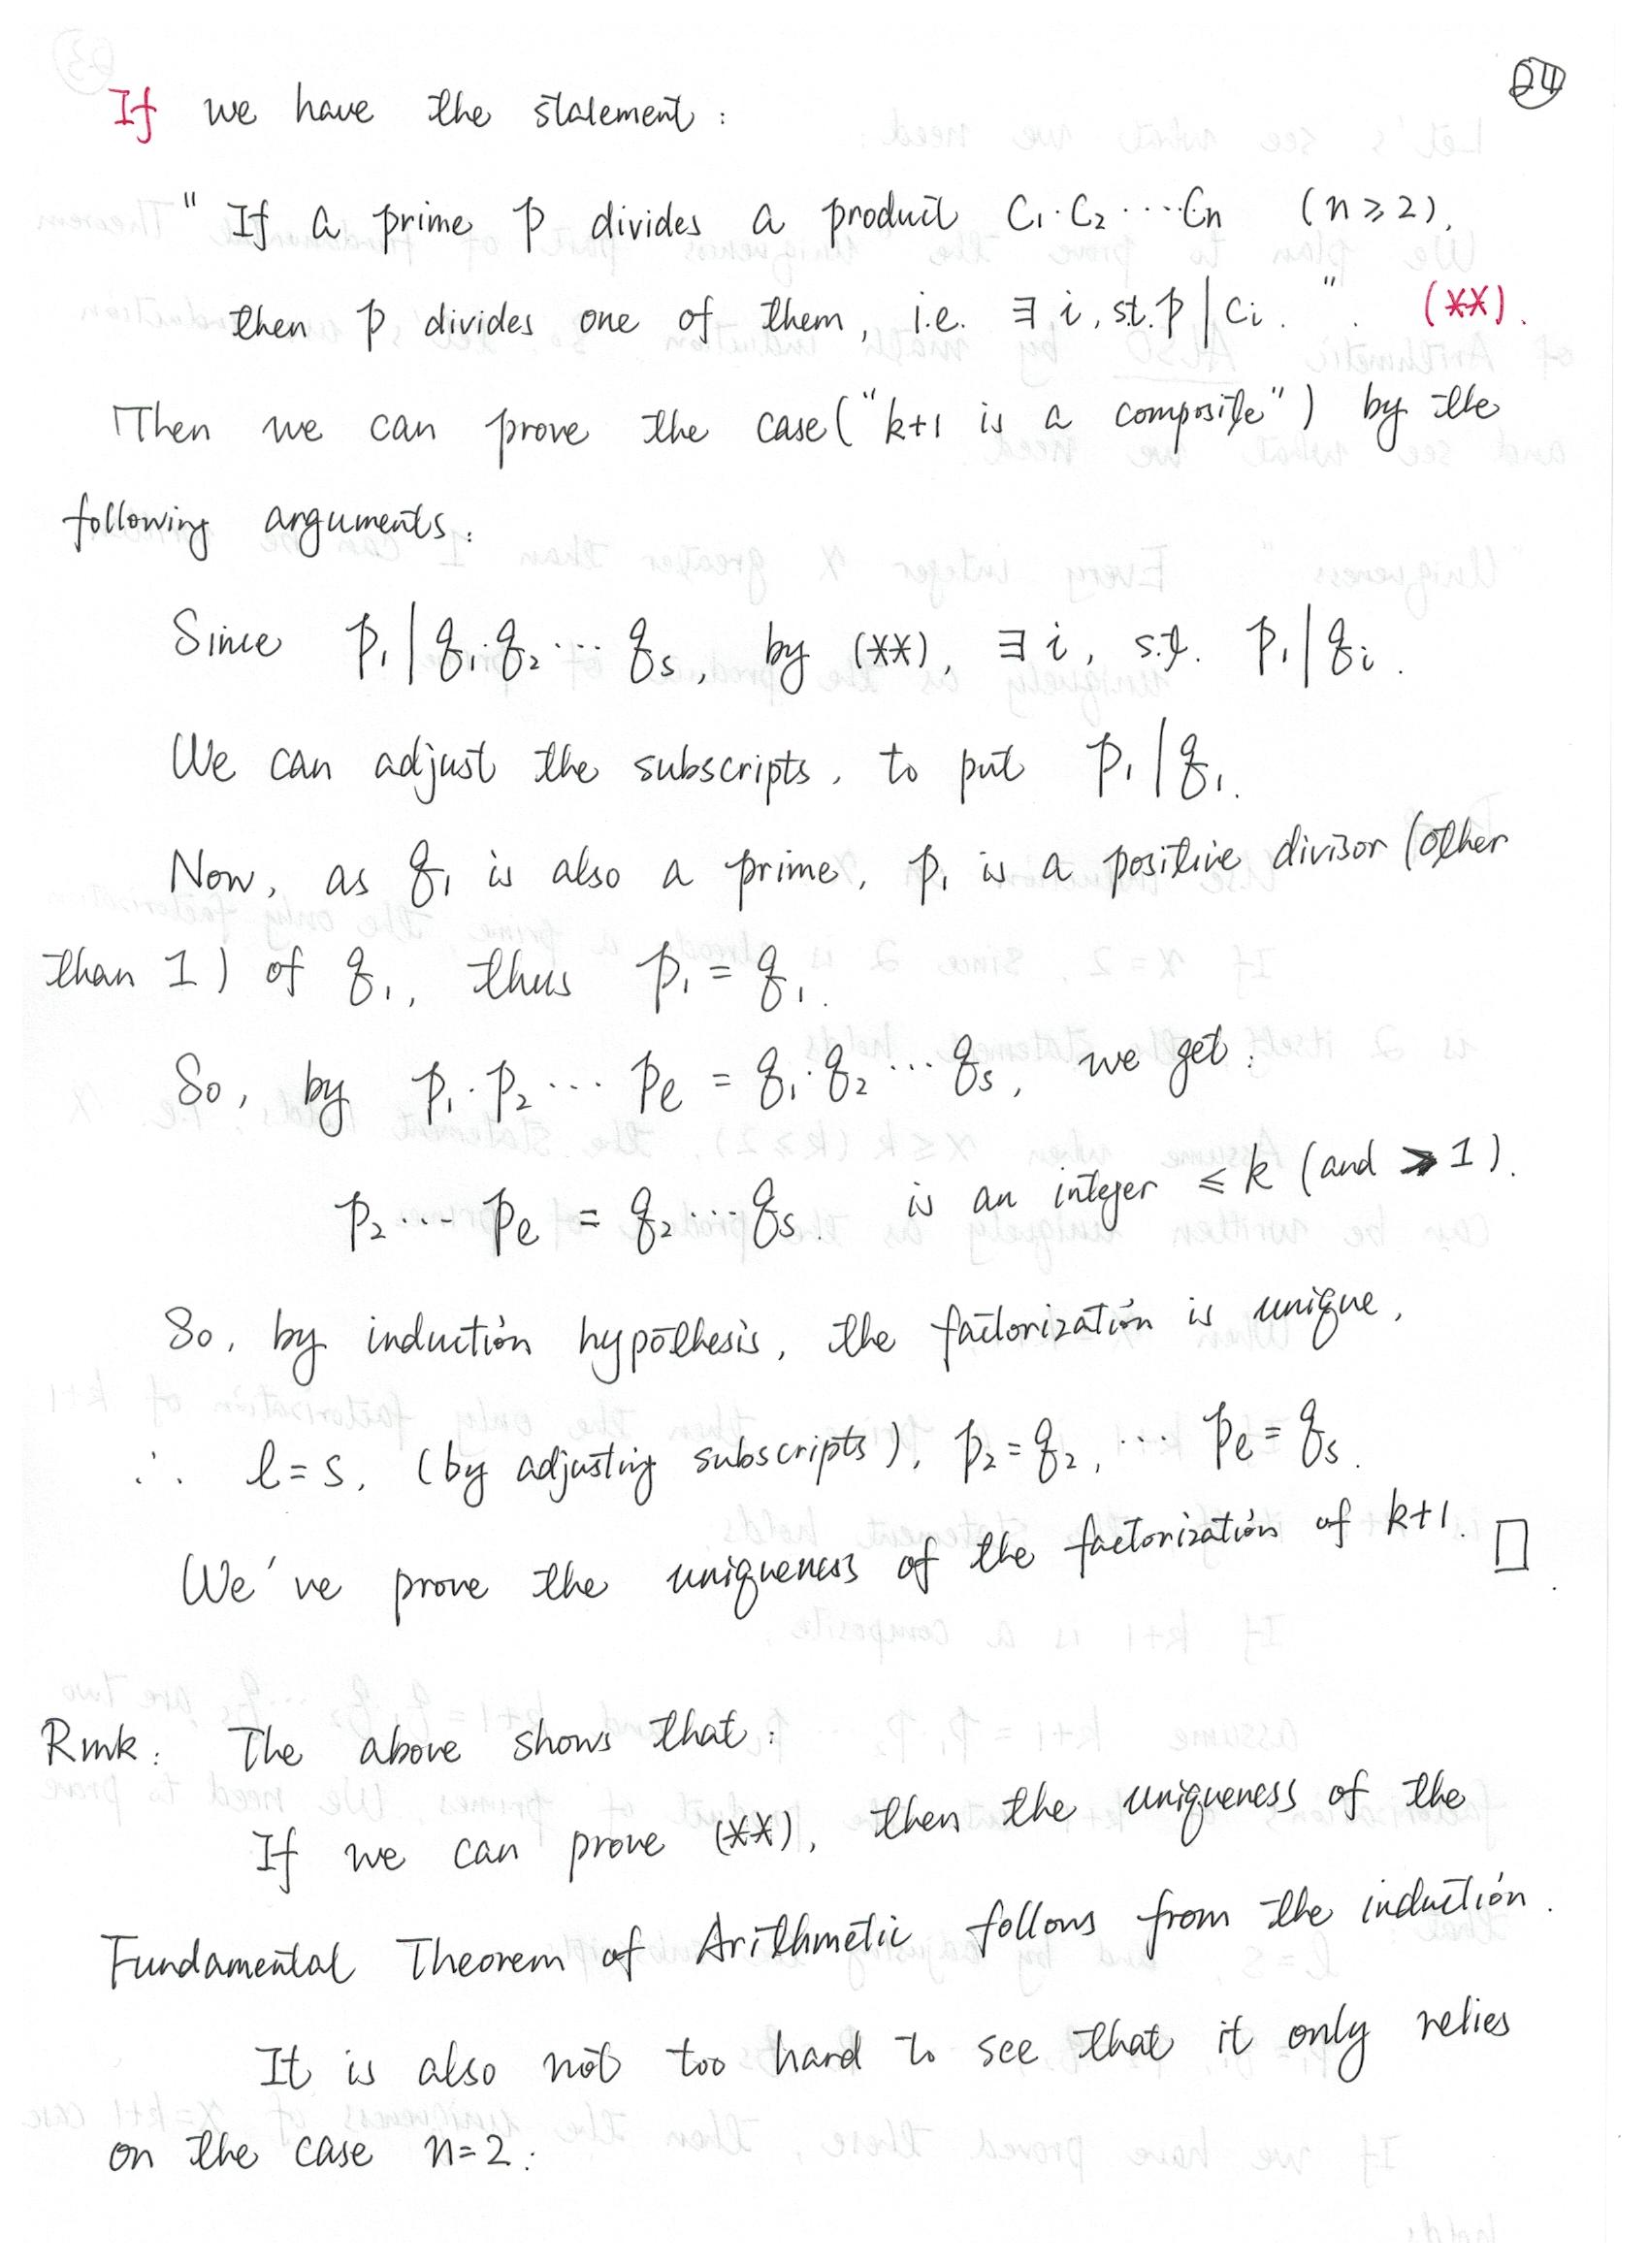 24
If we have the statement:
" If a prime p divides a product C₁·C₂·····Cn (n≥2),
then p divides one of them, i.e. ∃ i, s.t. p | Ci. ". (**).
Then we can prove the case ("k+1 is a composite") by the
following arguments:
Since p₁ | q₁·q₂···· qs, by (**), ∃ i, s.t. p₁ | qi.
We can adjust the subscripts, to put p₁ | q₁.
Now, as q₁ is also a prime, p₁ is a positive divisor (other
than 1) of q₁, thus p₁ = q₁.
So, by p₁·p₂ ··· pℓ = q₁·q₂···qs, we get:
p₂ ··· pℓ = q₂····qs. is an integer ≤ k (and > 1).
So, by induction hypothesis, the factorization is unique,
∴ ℓ = s, (by adjusting subscripts), p₂ = q₂, ··· pℓ = qs.
We've prove the uniqueness of the factorization of k+1. □.
Rmk: The above shows that:
If we can prove (**), then the uniqueness of the
Fundamental Theorem of Arithmetic follows from the induction.
It is also not too hard to see that it only relies
on the case n=2: